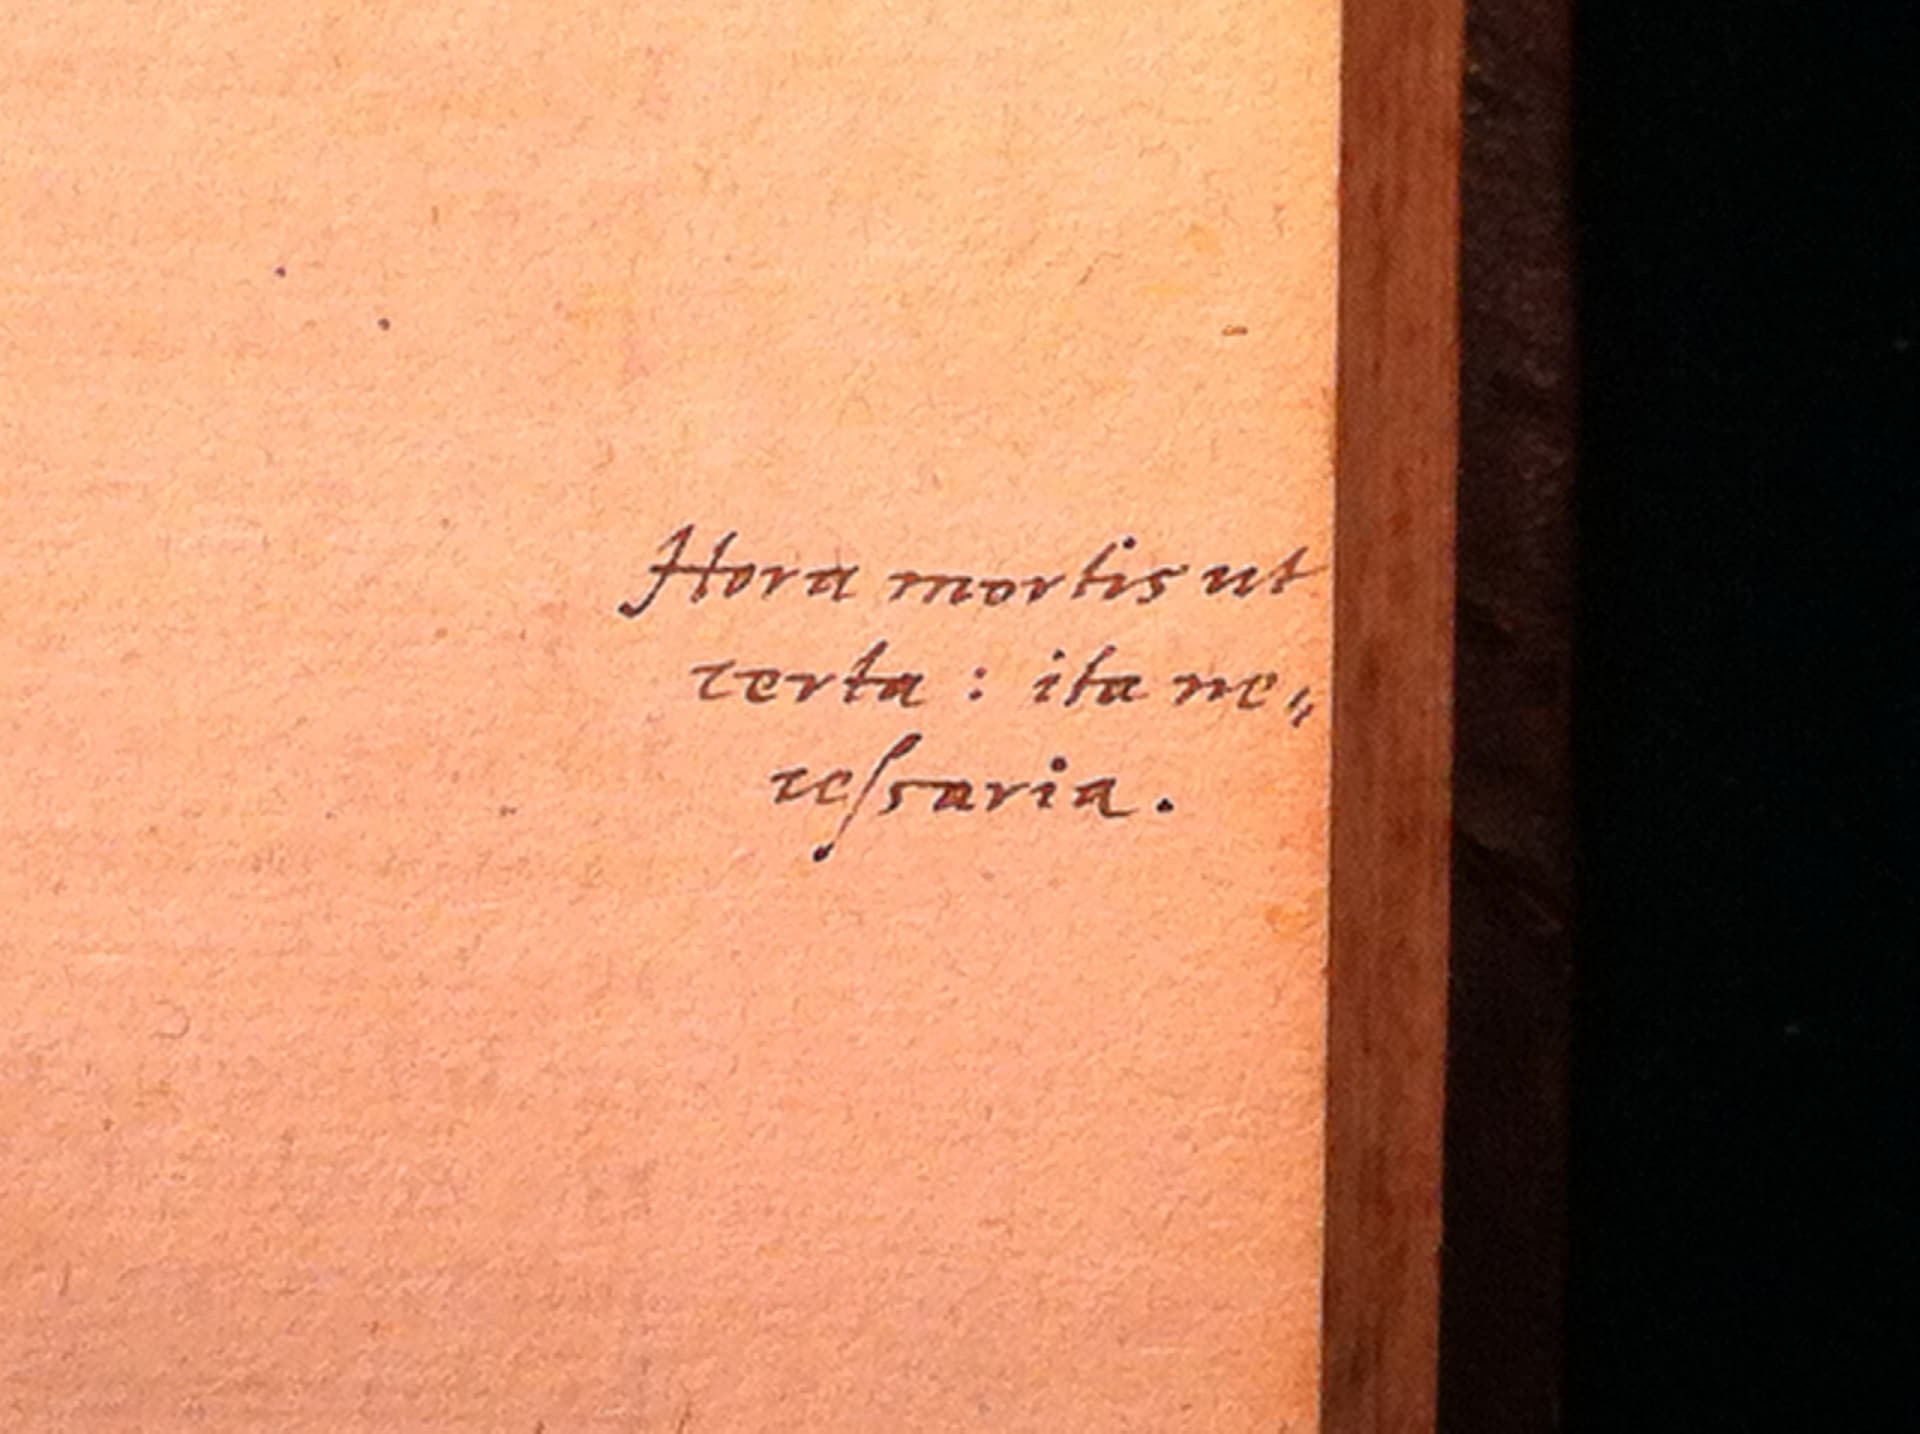 Hora mortis ut
certa : ita ne„
ceſsaria.